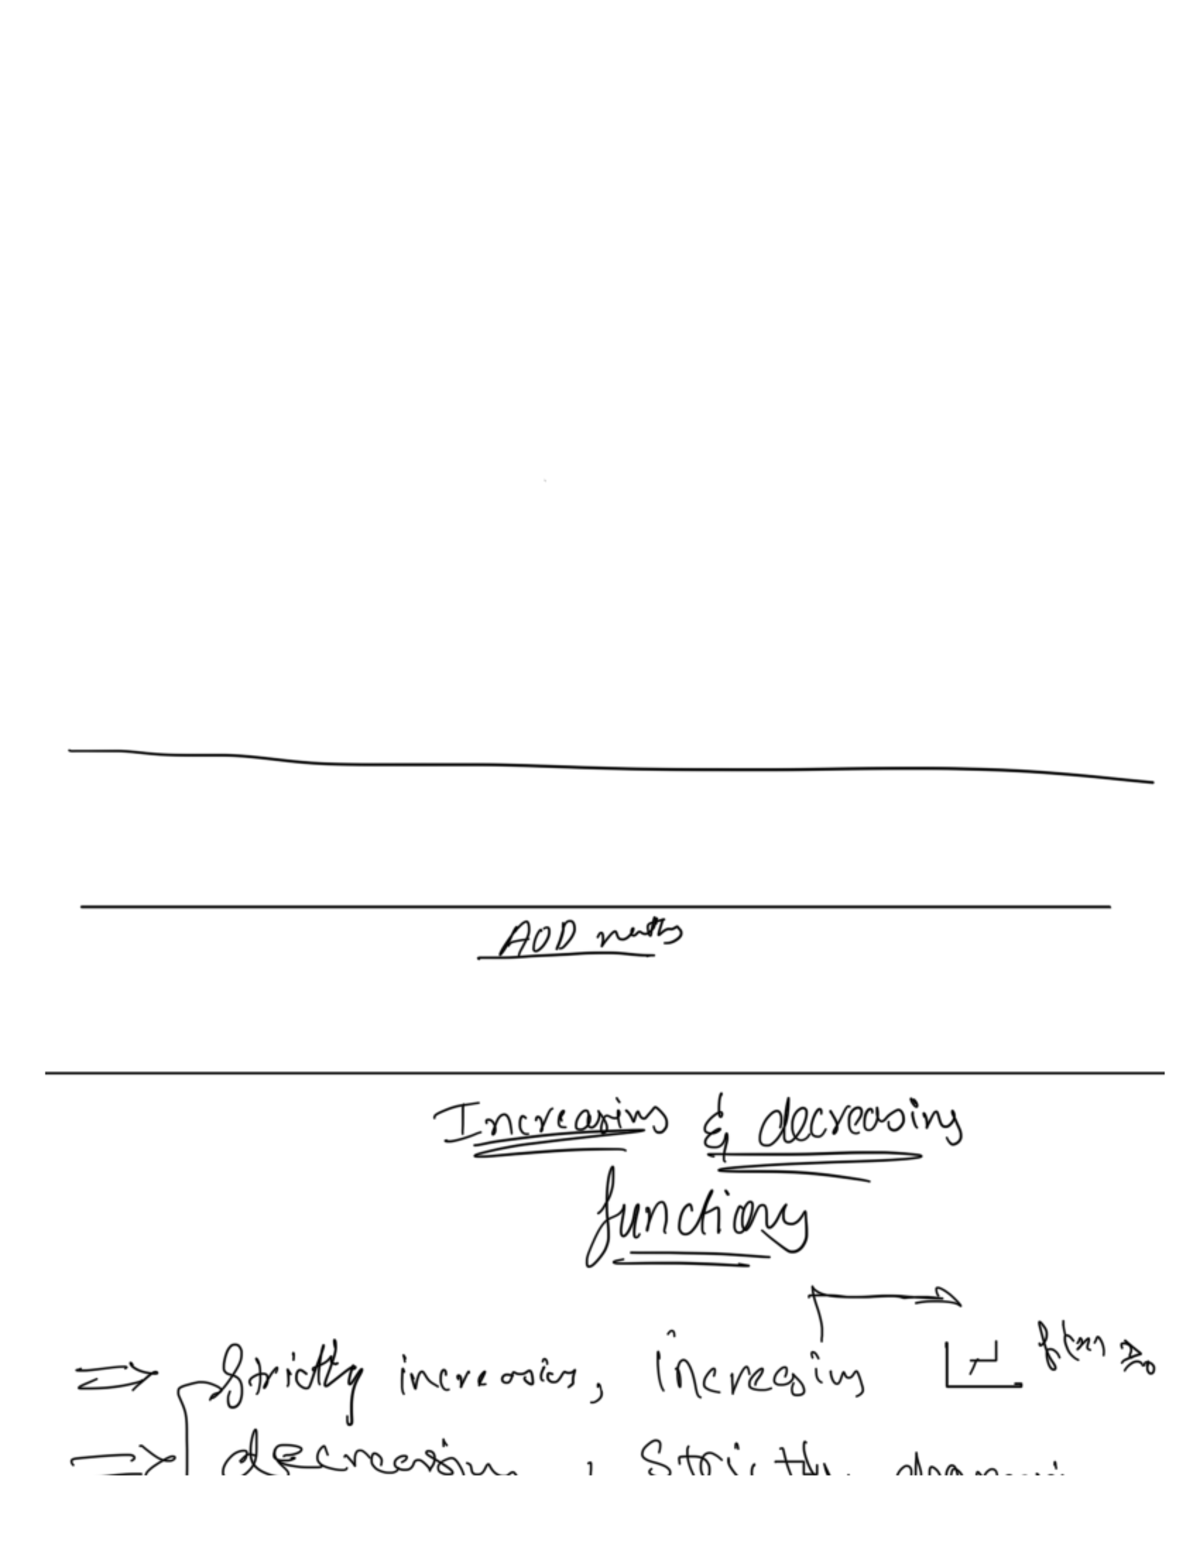 AOD maths
Increasing & decreasing
functions
⇒ Strictly increasing, increasing f(x) ≥ 0
⇒ decreasing, Strictly